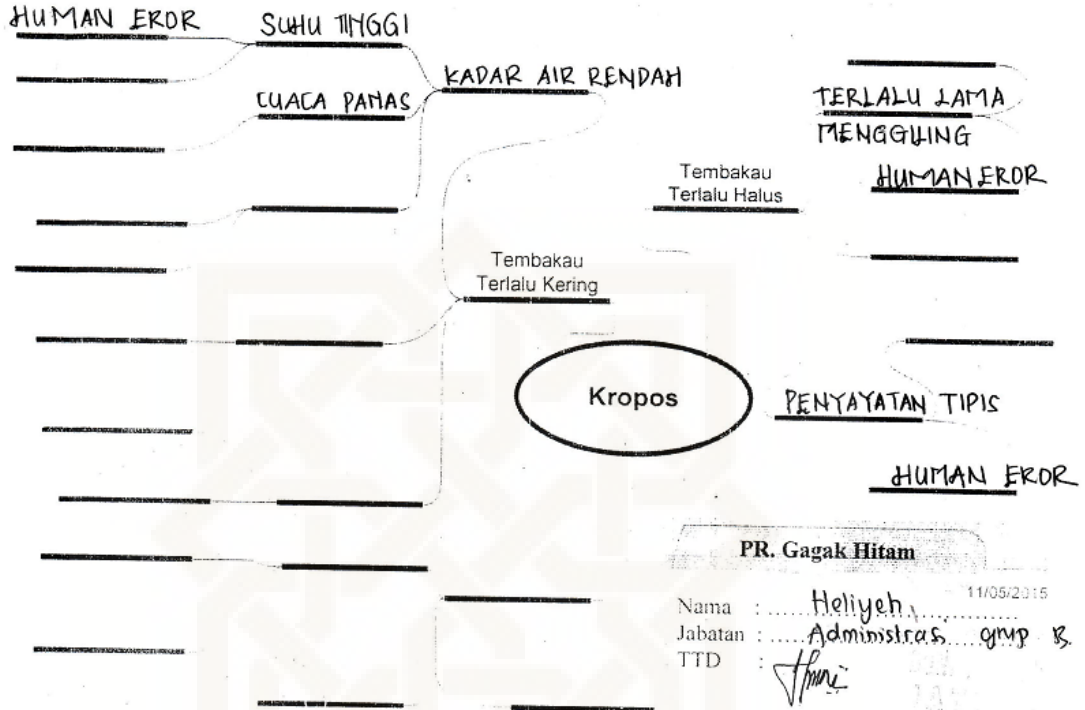 HUMAN EROR
SUHU TINGGI
KADAR AIR RENDAH
CUACA PANAS
TERLALU LAMA
MENGGILING
Tembakau
Terlalu Halus
HUMAN EROR
Tembakau
Terlalu Kering
Kropos
PENYAYATAN TIPIS
HUMAN EROR
PR. Gagak Hitam
11/05/2015
Nama : Heliyeh
Jabatan : Administras grup B.
TTD :